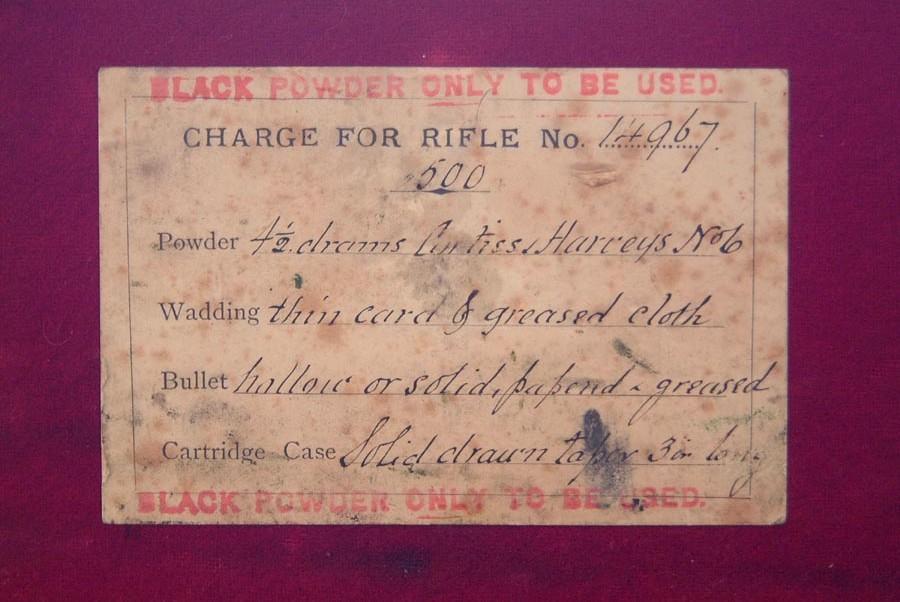 BLACK POWDER ONLY TO BE USED.
CHARGE FOR RIFLE No. 14967.
500
Powder 4½ drams Curtiss & Harveys No 6
Wadding thin card & greased cloth
Bullet hollow or solid, papend & greased
Cartridge Case Solid drawn taper 3in long
BLACK POWDER ONLY TO BE USED.